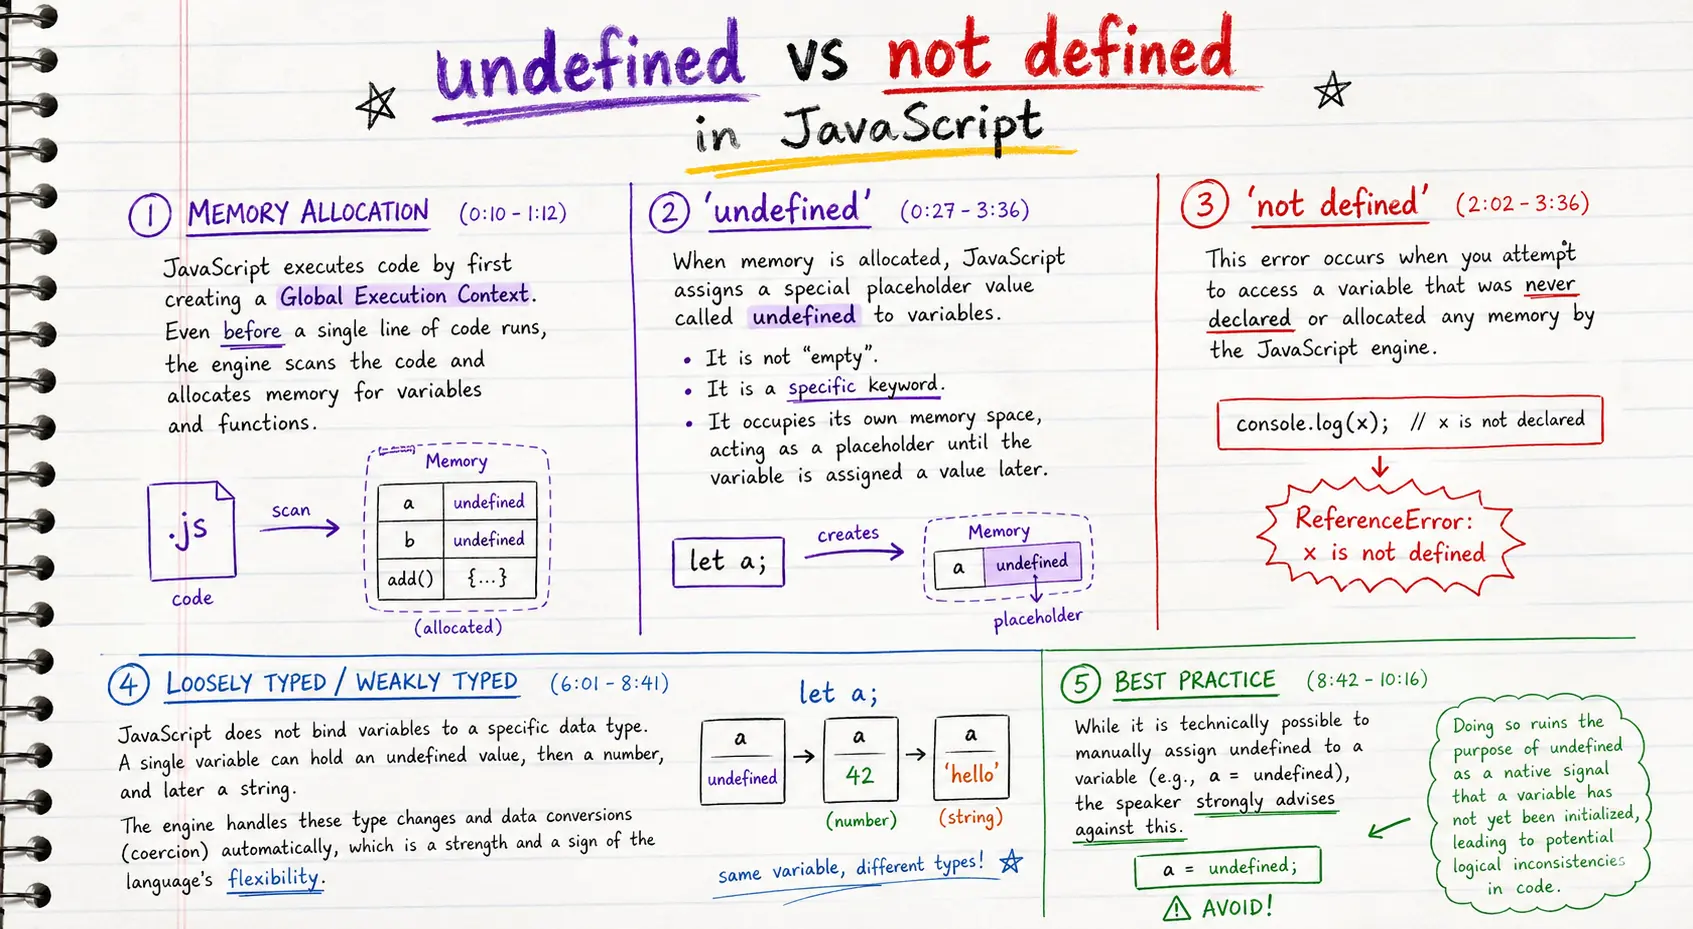 undefined vs not defined
in JavaScript
1 MEMORY ALLOCATION (0:10 - 1:12)
JavaScript executes code by first
creating a Global Execution Context.
Even before a single line of code runs,
the engine scans the code and
allocates memory for variables
and functions.
.js
code
scan
Memory
a undefined
b undefined
add() {...}
(allocated)
2 'undefined' (0:27 - 3:36)
When memory is allocated, JavaScript
assigns a special placeholder value
called undefined to variables.
• It is not "empty".
• It is a specific keyword.
• It occupies its own memory space,
acting as a placeholder until the
variable is assigned a value later.
let a;
creates
Memory
a undefined
placeholder
3 'not defined' (2:02 - 3:36)
This error occurs when you attempt
to access a variable that was never
declared or allocated any memory by
the JavaScript engine.
console.log(x); // x is not declared
ReferenceError:
x is not defined
4 LOOSELY TYPED / WEAKLY TYPED (6:01 - 8:41)
JavaScript does not bind variables to a specific data type.
A single variable can hold an undefined value, then a number,
and later a string.
The engine handles these type changes and data conversions
(coercion) automatically, which is a strength and a sign of the
language's flexibility.
let a;
a
undefined
a
42
(number)
a
'hello'
(string)
same variable, different types!
5 BEST PRACTICE (8:42 - 10:16)
While it is technically possible to
manually assign undefined to a
variable (e.g., a = undefined),
the speaker strongly advises
against this.
a = undefined;
AVOID!
Doing so ruins the
purpose of undefined
as a native signal
that a variable has
not yet been initialized,
leading to potential
logical inconsistencies
in code.